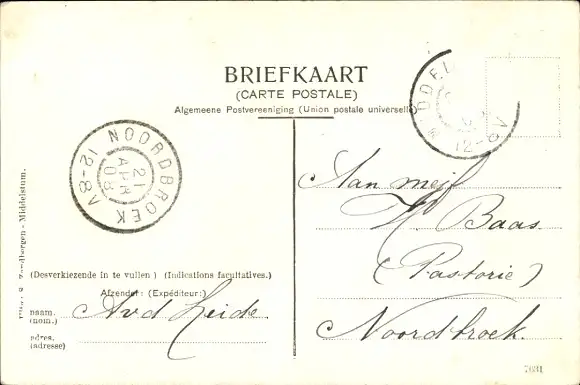 BRIEFKAART
(CARTE POSTALE)
Algemeene Postvereeniging (Union postale universelle)
NOORDBROEK
21
APR
08
12-8V
12-8V
Aan mej
H Baas.
(Pastorie)
Noordbroek.
(Desverkiezende in te vullen) (Indications facultatives.)
Afzender: (Expéditeur:)
naam. (nom.) Avd Heide.
adres. (adresse)
- Middelstum.
7631